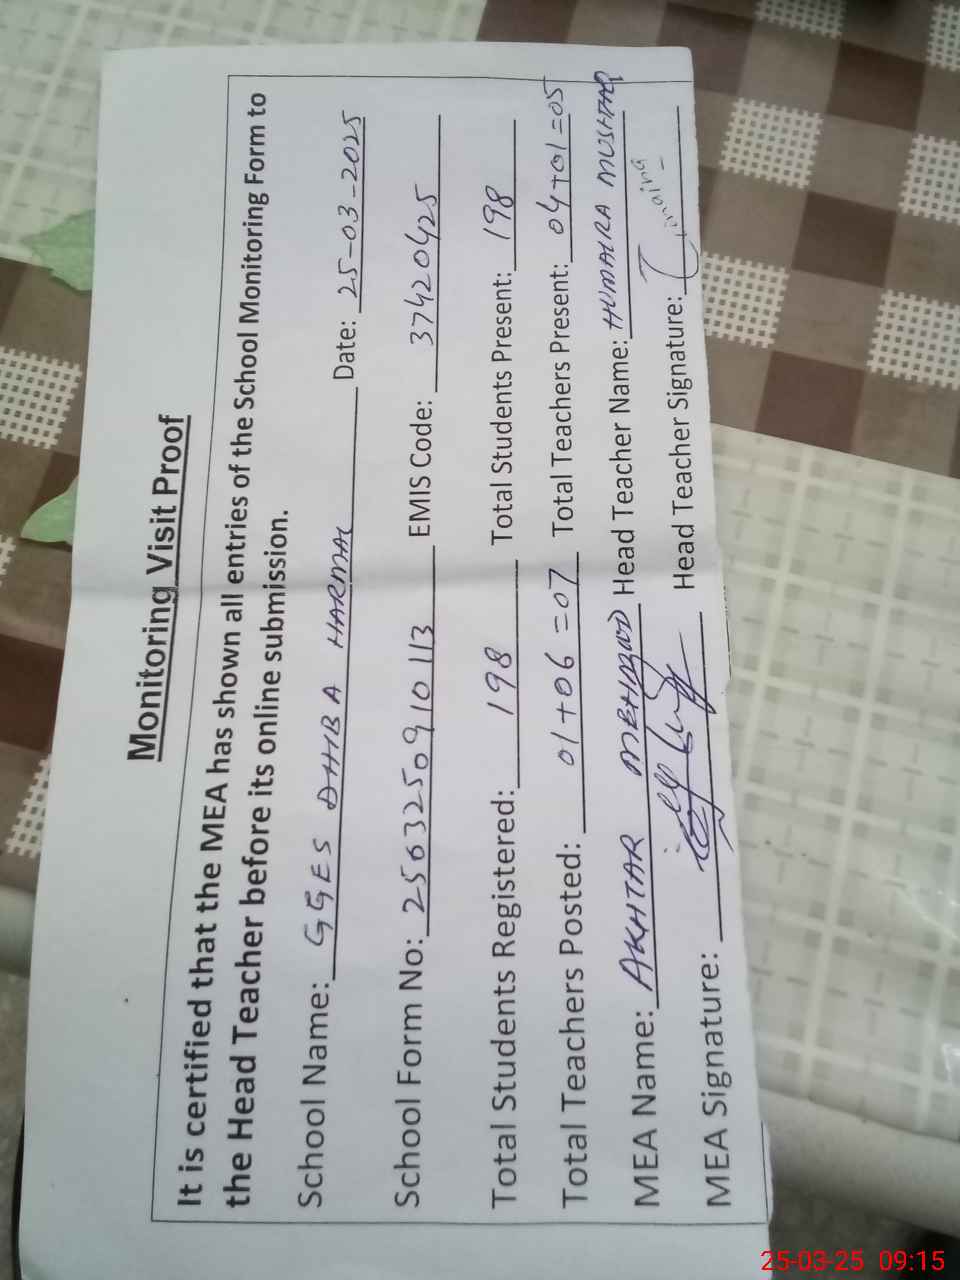 Monitoring Visit Proof
It is certified that the MEA has shown all entries of the School Monitoring Form to
the Head Teacher before its online submission.
School Name: GGES DHIBA HARMAL Date: 25-03-2025
School Form No: 2563250910113 EMIS Code: 37420425
Total Students Registered: 198 Total Students Present: 198
Total Teachers Posted: 01+06=07 Total Teachers Present: 04+01=05
MEA Name: AKHTAR Head Teacher Name: HUMAIRA MUSHTAQ
MEA Signature: Head Teacher Signature:
25-03-25 09:15